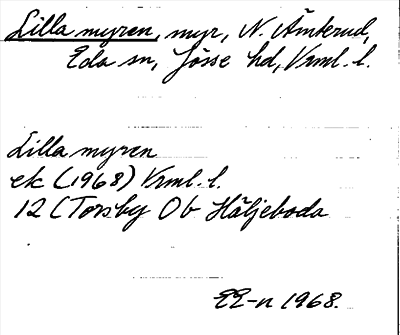 Lilla myren, myr, N. Ämterud,
Eda sn, Jösse hd, Vrml. l.
Lilla myren
ek (1968) Vrml. l.
12 C Torsby Ob Häljeboda
EE-n 1968.